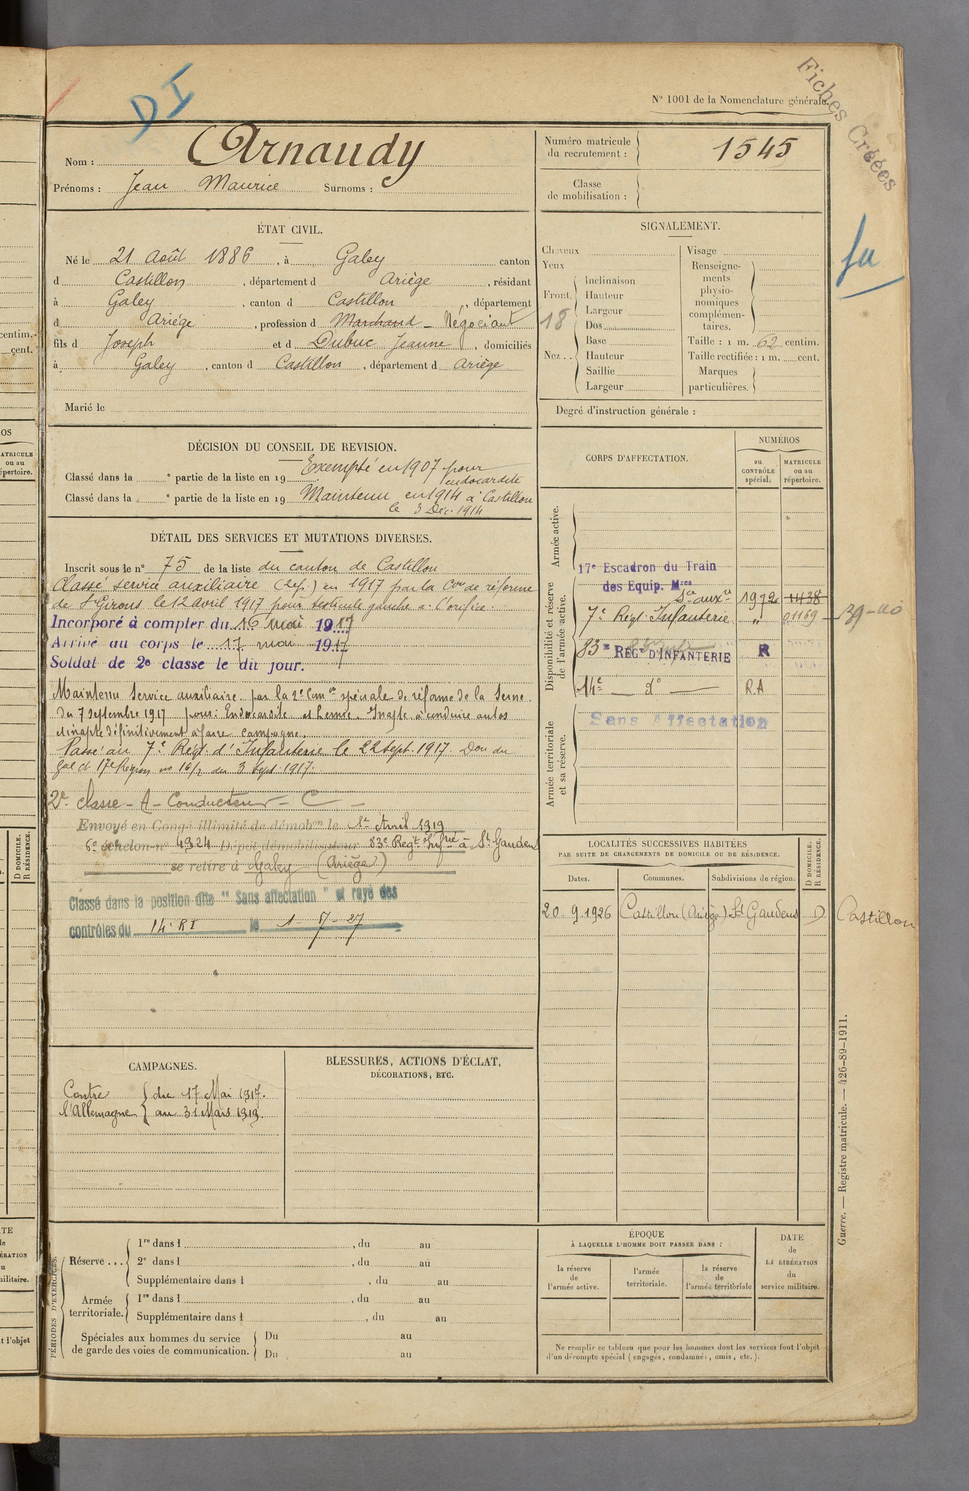 N° 1001 de la Nomenclature générale.
Fiches Créées
DI
Nom : Arnaudy
Prénoms : Jean Maurice Surnoms :
Numéro matricule du recrutement : 1545
Classe de mobilisation :
ÉTAT CIVIL.
Né le 21 Août 1886, à Galey canton
d Castillon, département d Ariège, résidant
à Galey, canton d Castillon, département
d Ariège, profession d Marchand - Négociant
fils d Joseph et d Dubuc Jeanne, domiciliés
à Galey, canton d Castillon, département d Ariège
Marié le
SIGNALEMENT.
Cheveux
Yeux
Front. Inclinaison
Hauteur
Largeur
18
Nez.. Dos
Base
Hauteur
Saillie
Largeur
Visage
Renseignements physionomiques complémentaires.
Taille : 1 m. 62 centim.
Taille rectifiée : 1 m. cent.
Marques particulières.
Degré d'instruction générale :
DÉCISION DU CONSEIL DE REVISION.
Classé dans la e partie de la liste en 19 Exempté en 1907 pour endocardite
Classé dans la e partie de la liste en 19 Maintenu en 1914 à Castillon
le 3 Déc. 1914
DÉTAIL DES SERVICES ET MUTATIONS DIVERSES.
Inscrit sous le n° 75 de la liste du canton de Castillon
Classé service auxiliaire en 1917 par la Con de réforme
de St Girons le 12 avril 1917 pour
Incorporé à compter du 16 mai 1917
Arrivé au corps le 17 mai 1917
Soldat de 2e classe le dit jour.
Maintenu Service auxiliaire par la 2e Com on spéciale de réforme de la Seine
du 7 septembre 1917 pour: Endocardite et hernie. Inapte à conduire autos
et inapte définitivement à faire campagne.
Passé au 7e Regt d'Infanterie le 22 sept. 1917. Don du
Gal Ct 17e Région no 16/2 du 3 Sept 1917.
2e classe - A - Conducteur - C -
Envoyé en Congé illimité de démobon le 1er Avril 1919
6e échelon n° 4924 Dépôt démobilisateur 83e Regt Infrie à St Gaudens
se retire à Galey (Ariège)
Classé dans la position dite "Sans affectation" et rayé des
contrôles du 14e RI le 1-5-27
CORPS D'AFFECTATION.
NUMÉROS
au CONTRÔLE spécial.
MATRICULE ou au répertoire.
Armée active.
Disponibilité et réserve de l'armée active.
Armée territoriale et sa réserve.
17e Escadron du Train
des Equip. Mres
Son auxre 1972 1438
7e Regt Infanterie " 01169
83e REGt D'INFANTERIE R
14e do R.A
Sans Affectation
LOCALITÉS SUCCESSIVES HABITÉES
PAR SUITE DE CHANGEMENTS DE DOMICILE OU DE RÉSIDENCE.
Dates. Communes. Subdivisions de région. D DOMICILE. R RÉSIDENCE.
20.9.1926 Castillon (Ariège) St Gaudens D Castillon
CAMPAGNES.
Contre l'Allemagne du 17 Mai 1917.
au 31 Mars 1919.
BLESSURES, ACTIONS D'ÉCLAT,
DÉCORATIONS, ETC.
PÉRIODES D'EXERCICES.
Réserve... 1re dans l , du au
2e dans l , du au
Supplémentaire dans l , du au
Armée territoriale. 1re dans l , du au
Supplémentaire dans l , du au
Spéciales aux hommes du service de garde des voies de communication. Du au
Du au
ÉPOQUE
À LAQUELLE L'HOMME DOIT PASSER DANS :
la réserve de l'armée active.
l'armée territoriale.
la réserve de l'armée territoriale
DATE de LA LIBÉRATION du service militaire.
Ne remplir ce tableau que pour les hommes dont les services font l'objet
d'un décompte spécial (engagés, condamnés, omis, etc.).
Guerre. — Registre matricule. — 426-89-1911.